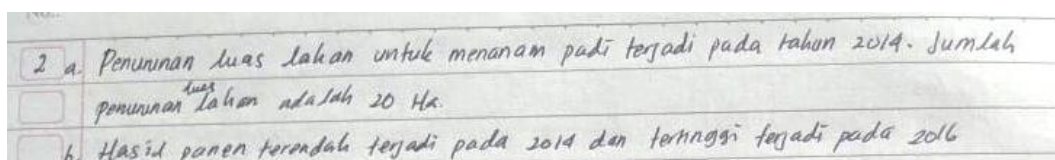 2 a. Penurunan luas lahan untuk menanam padi terjadi pada tahun 2014. Jumlah
penurunan luas lahan adalah 20 Ha.
b. Hasil panen terendah terjadi pada 2014 dan tertinggi terjadi pada 2016